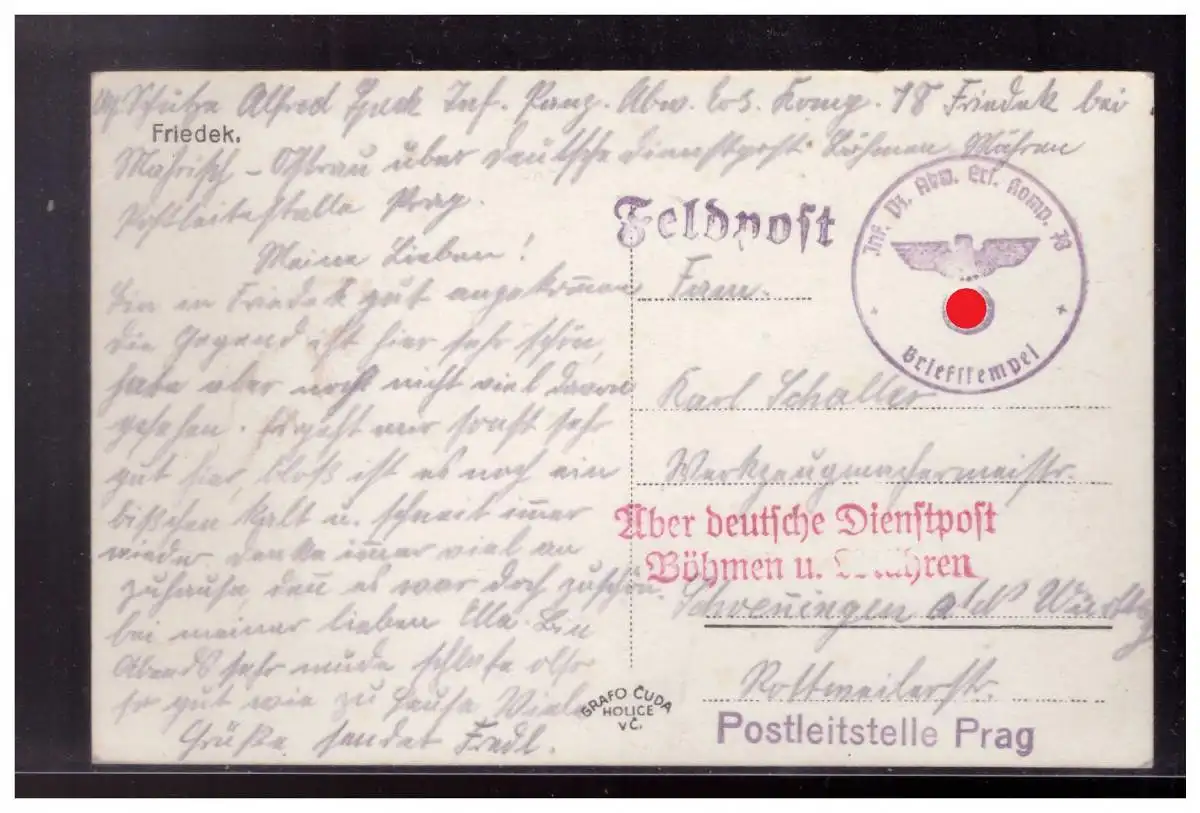 Stube Alfred Inf. Panz. Abw. Ers. Komp. 78 Friedek bei
Friedek.
Mährisch-Ostrau über deutsche Dienstpost Böhmen Mähren
Postleitstelle Prag.
Meine Lieben!
Bin in Friedek gut angekommen
die Gegend ist hier sehr schön,
habe aber noch nicht viel davon
gesehen. Es geht mir sonst sehr
gut hier, bloß ist es noch ein
bißchen kalt u. schneit immer
wieder. Denke immer viel an
zuhause, denn es war doch zu schön
bei meiner lieben Ella. Bin
Abends sehr müde schlafe also
so gut wie zu Hause Viele
Grüße sendet Fredl.
Feldpost
Inf. Pz. Abw. Ers. Komp. 78
Briefstempel
Fam.
Karl Schaller
Werkzeugmachermeistr.
Über deutsche Dienstpost
Böhmen u. Mähren
Schwenningen a/d Württbg
Rottweilerstr.
GRAFO ČUDA
HOLICE
V Č.
Postleitstelle Prag